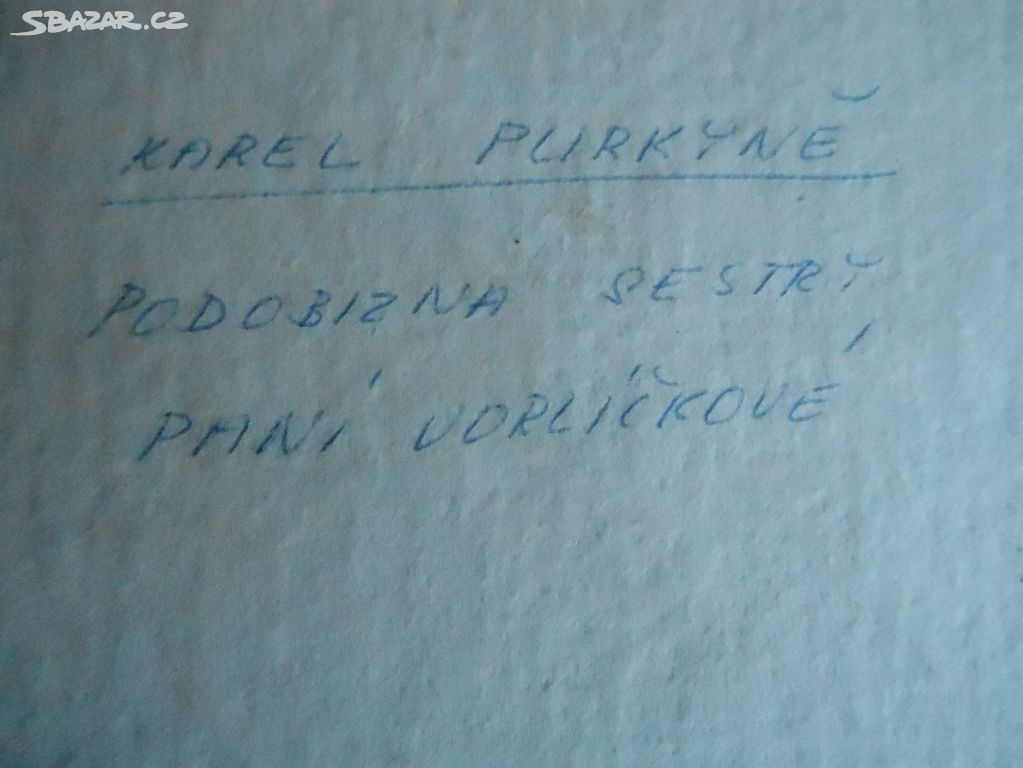 SBAZAR.CZ
KAREL PURKYNĚ
PODOBIZNA SESTRY
PANÍ VORLÍČKOVÉ